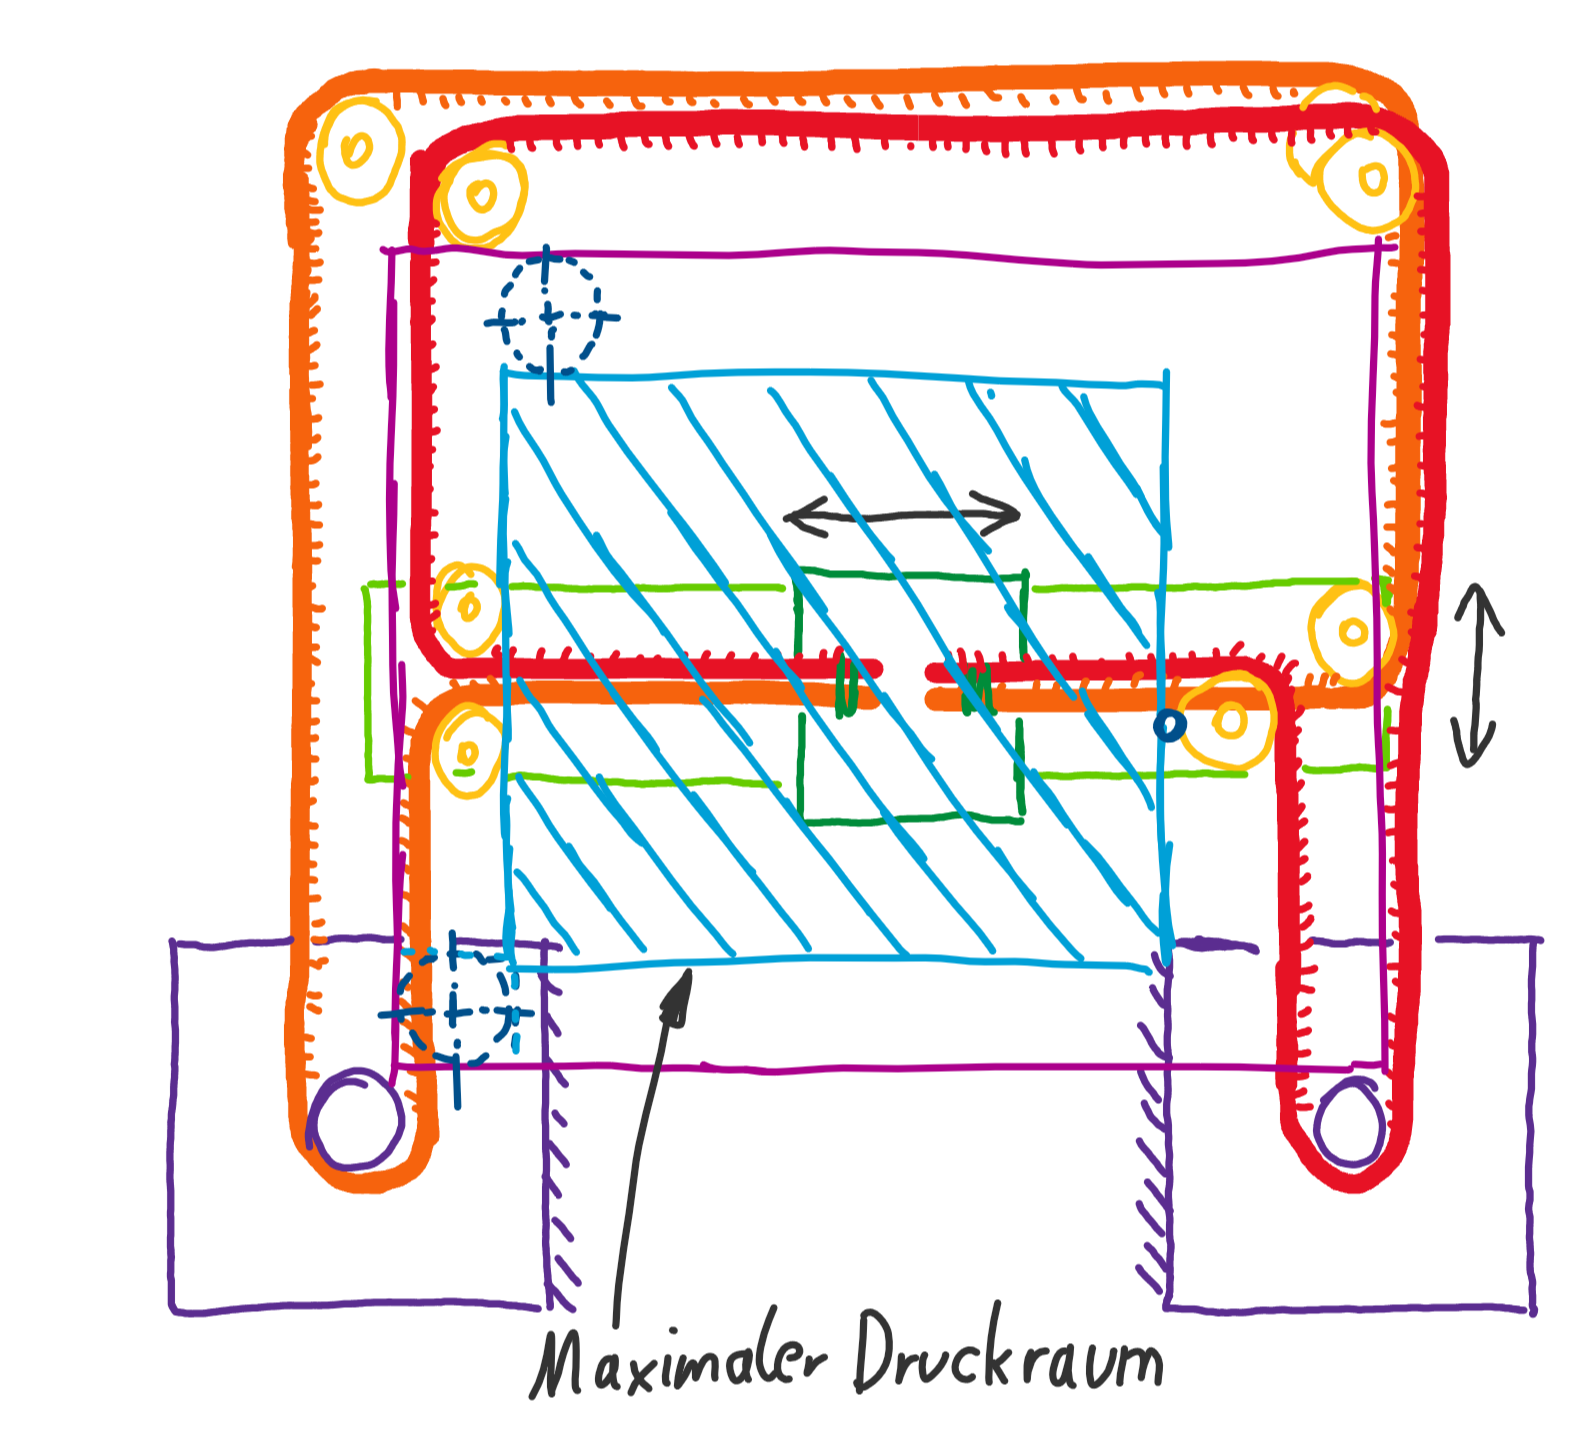 Maximaler Druckraum